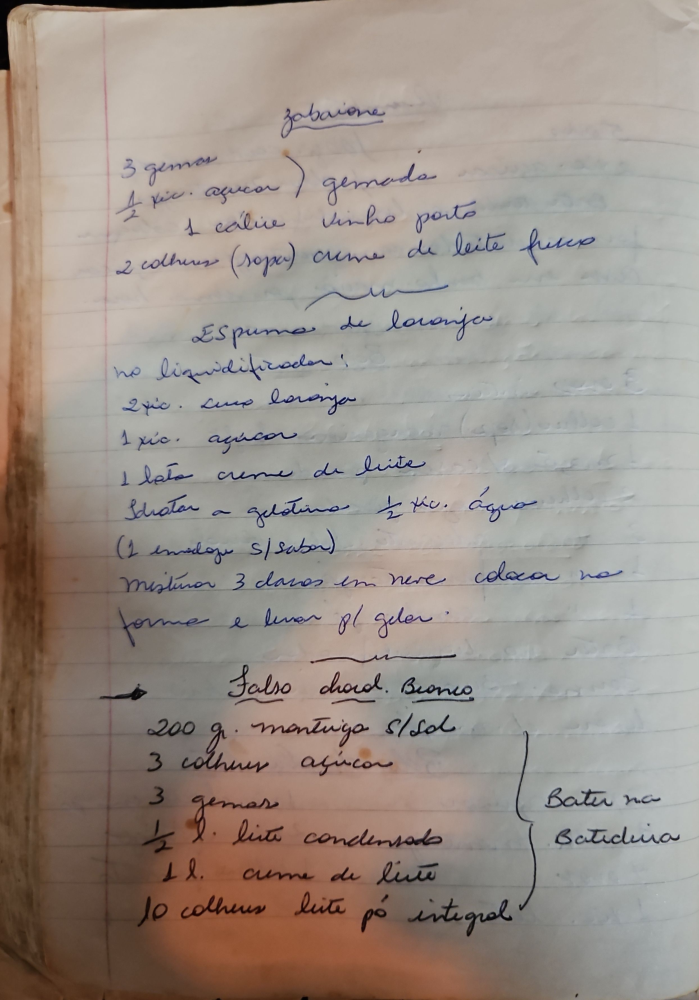 Zabaione
3 gemas
1/2 xic. açucar ) gemada
1 cálice vinho porto
2 colheres (sopa) creme de leite fresco
Espuma de laranja
no liquidificador:
2 xic. suco laranja
1 xic. açucar
1 lata creme de leite
Idratar a gelatina 1/2 xic. água
(1 envelope s/sabor)
Misturar 3 claras em neve colocar na
forma e levar p/ gelar.
Falso chocol. Branco
200 gr. manteiga s/sal
3 colheres açúcar
3 gemas
1/2 l. leite condensado
1 l. creme de leite
10 colheres leite pó integral
Bater na
Batedeira